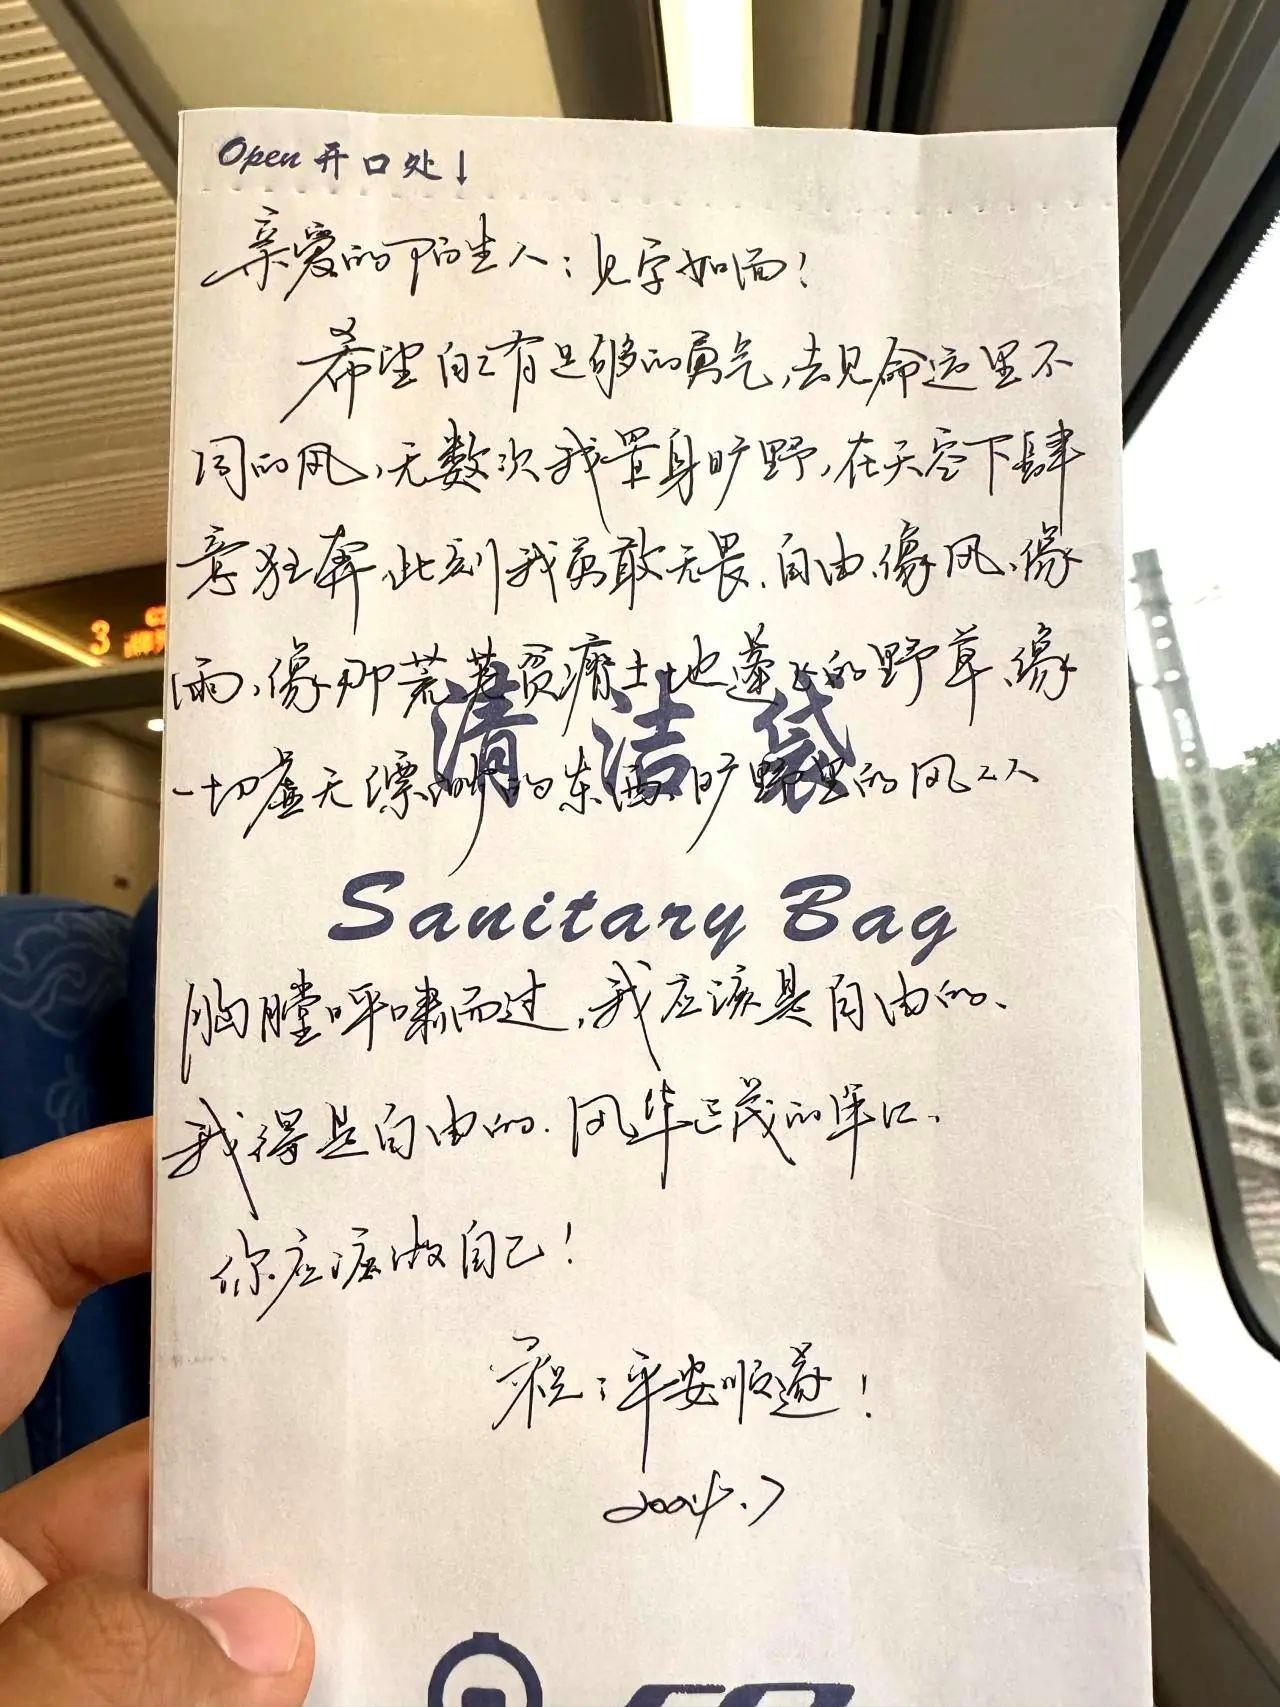 Open 开口处↓
亲爱的陌生人:见字如面!
希望自己有足够的勇气,去见命运里不
同的风,无数次我置身旷野,在天空下肆
意狂奔,此刻我勇敢无畏、自由、像风、像
雨、像那荒芜贫瘠土地蓬飞的野草、像
清洁袋
一切虚无缥缈的东西,旷野里的风从
Sanitary Bag
胸膛呼啸而过,我应该是自由的、
我得是自由的、风华正茂的年纪、
你应该做自己!
祝:平安顺遂!
3